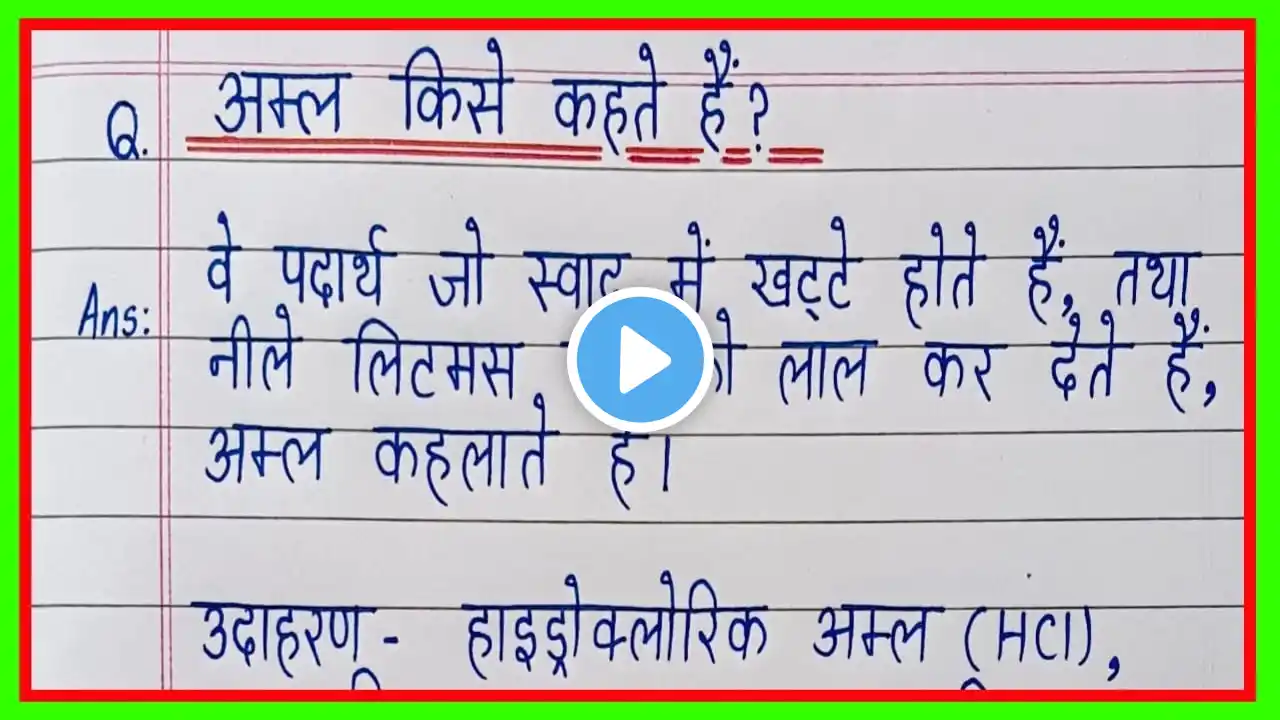 Q. अम्ल किसे कहते हैं?
Ans: वे पदार्थ जो स्वाद में खट्टे होते हैं, तथा
नीले लिटमस को लाल कर देते हैं,
अम्ल कहलाते हैं।
उदाहरण - हाइड्रोक्लोरिक अम्ल (HCl),